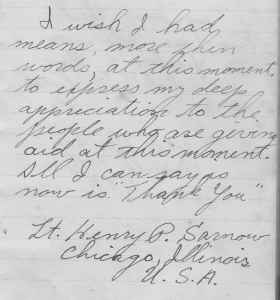 I wish I had
means, more then
words, at this moment,
to express my deep
appreciation to the
people who are giving
aid, at this moment.
All I can say
now is "Thank You"
Lt. Henry P. Sarnow
Chicago, Illinois
U. S. A.